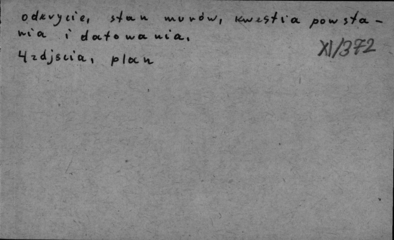 odkrycie, stan murów, kwestia powsta-
nia i datowania.
4 zdjścia, plan
XI/372